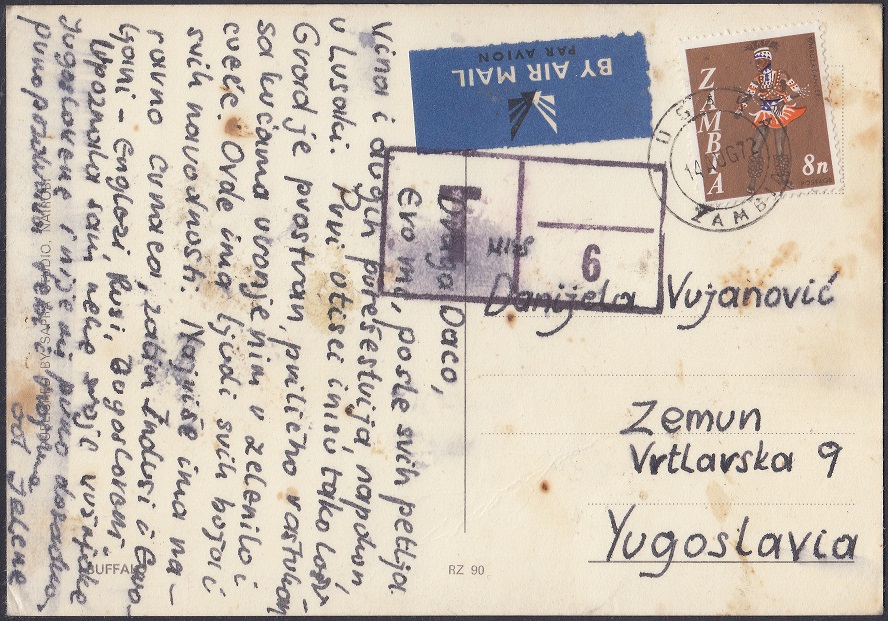 BY AIR MAIL
PAR AVION
ZAMBIA
8n
14 AUG 72
ZAMBIA
6
Danijela Vujanović
Zemun
Vrtlarska 9
Yugoslavia
Draga Daco,
Evo me, posle svih petlja-
vina i drugih putešestvija, napokon
u Lusaki. Prvi utisci nisu tako loši.
Grad je prostran, prilično rastrkan
sa kućama uronjenim u zelenilo i
cveće. Ovde ima ljudi svih boja i
svih narodnosti. Najviše ima na-
ravno crnaca, zatim Indusi i Evro-
pljani - Englezi, Rusi, Jugosloveni.
Upoznala sam neke svoje vršnjake
Jugoslovene i nije mi puno dosadno.
Puno pozdrava tebi i
od Jelene
BUFFALO
RZ 90
BY SAPRA STUDIO. NAIROBI